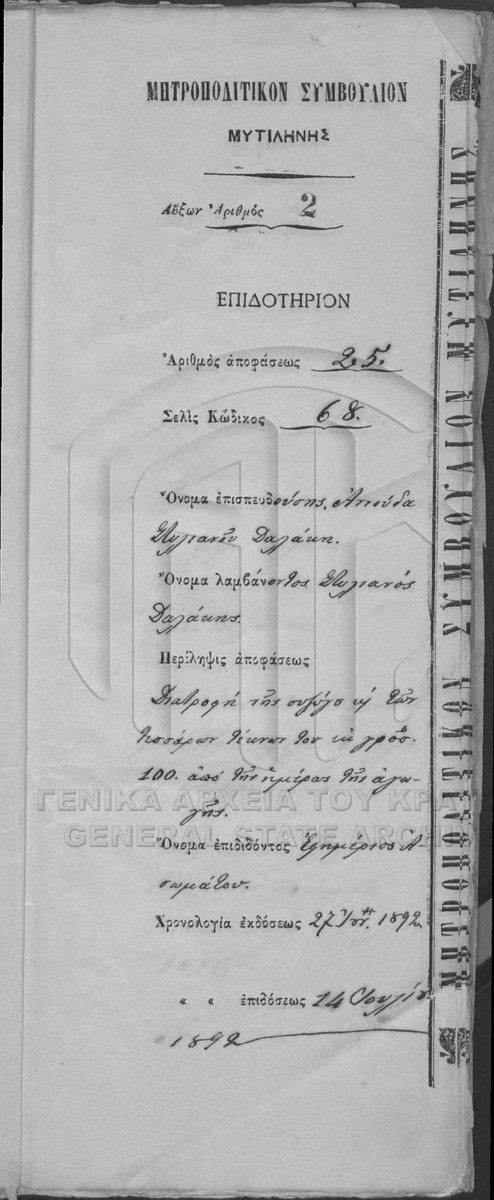 ΜΗΤΡΟΠΟΛΙΤΙΚΟΝ ΣΥΜΒΟΥΛΙΟΝ
ΜΥΤΙΛΗΝΗΣ
Αὔξων Ἀριθμός 2
ΕΠΙΔΟΤΗΡΙΟΝ
Ἀριθμὸς ἀποφάσεως 25.
Σελὶς Κώδικος 68.
Ὄνομα ἐπισπευδούσης,
Στυλιανοῦ Δαλάκη.
Ὄνομα λαμβάνοντος Στυλιανός
Δαλάκης.
Περίληψις ἀποφάσεως
Διατροφή τῆς συζύγου καὶ τῶν
τεσσάρων τέκνων του ἐκ γροσ.
100. ἀπό τῆς ἡμέρας τῆς ἀγω-
γῆς.
Ὄνομα ἐπιδιδόντος Ἐφημέριος Ἀ
σωμάτου.
Χρονολογία ἐκδόσεως 27 1892
« « ἐπιδόσεως 14 Ἰουλίου
1892
ΜΗΤΡΟΠΟΛΙΤΙΚΟΝ ΣΥΜΒΟΥΛΙΟΝ ΜΥΤΙΛΗΝΗΣ
ΓΕΝΙΚΑ ΑΡΧΕΙΑ ΤΟΥ ΚΡΑΤ
GENERAL STATE ARCHI